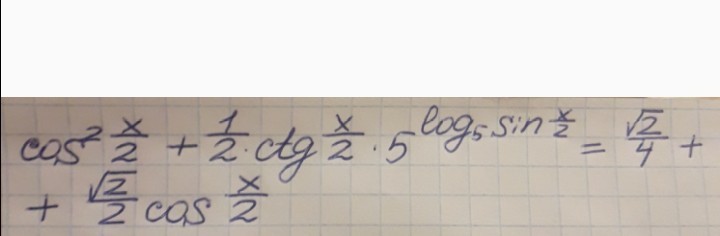 cos² x/2 + 1/2 · ctg x/2 · 5^(log₅ sin x/2) = √2/4 +
+ √2/2 cos x/2